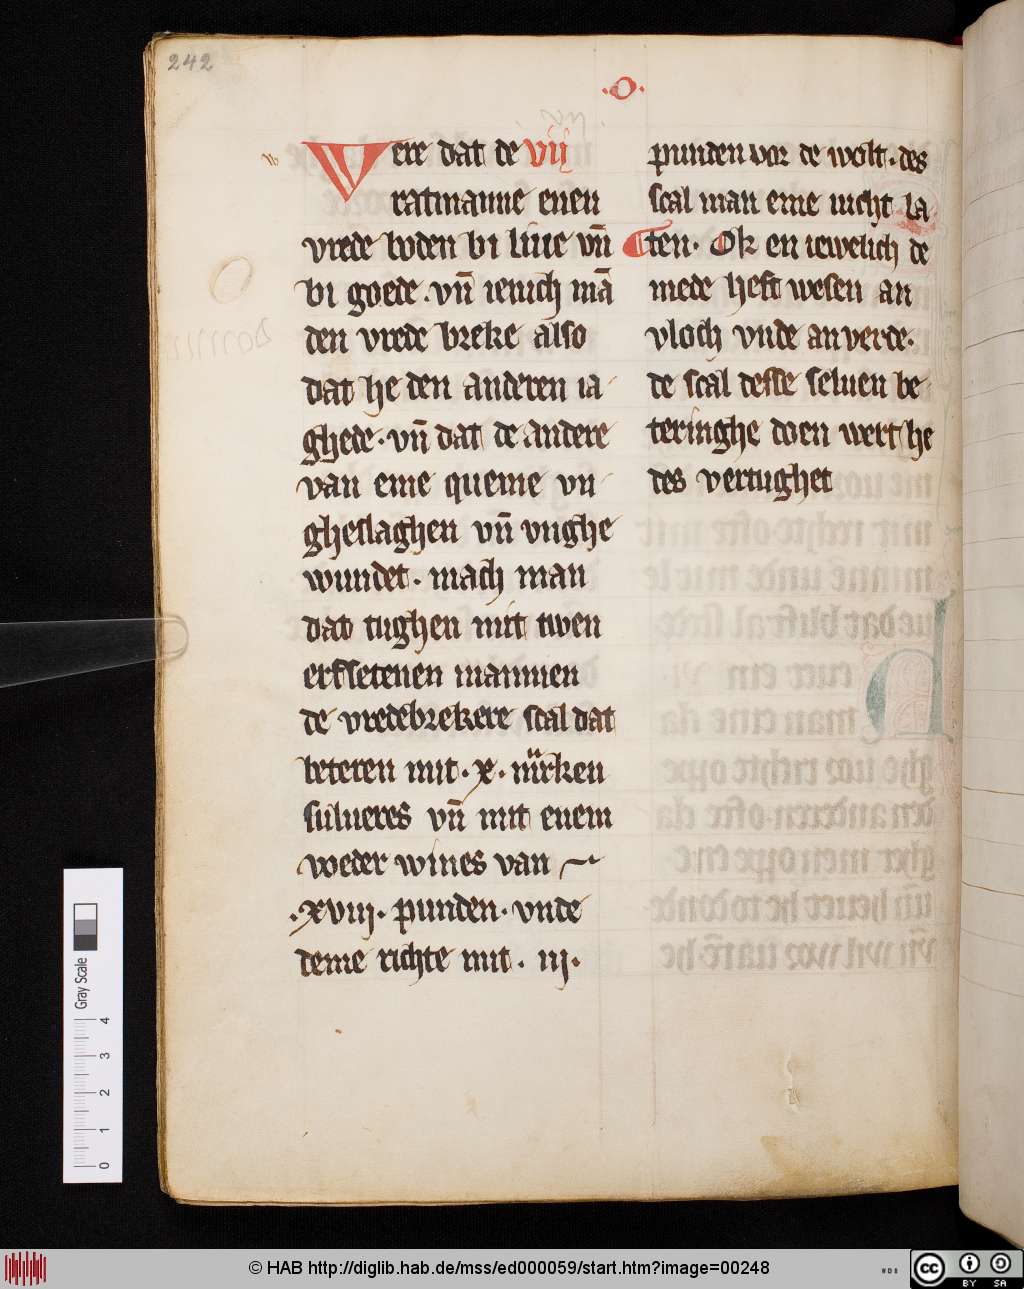 242
·O·
Were dat de vij
ratmanne enen
vrede boden bi liue vn̄
bi goede · vn̄ ienich mā
den vrede breke also
dat he den anderen ia
ghede · vn̄ dat de andere
van eme queme vn
gheslaghen vn̄ vnghe
wundet · mach man
dat tughen mit twen
erfsetenen mannen
de vredebrekere scal dat
beteren mit · x · mrken
sulueres vn̄ mit enem
voeder wines van
· xviij · punden · vnde
deme richte mit · iij ·
punden vor de wolt · des
scal man eme nicht la
ten · Ok en iewelich de
mede heft wesen an
vloch vnde an verde ·
de scal desse seluen be
teringhe doen wert he
des vertughet
Gray Scale
0 1 2 3 4
© HAB http://diglib.hab.de/mss/ed000059/start.htm?image=00248
WDB
CC BY SA